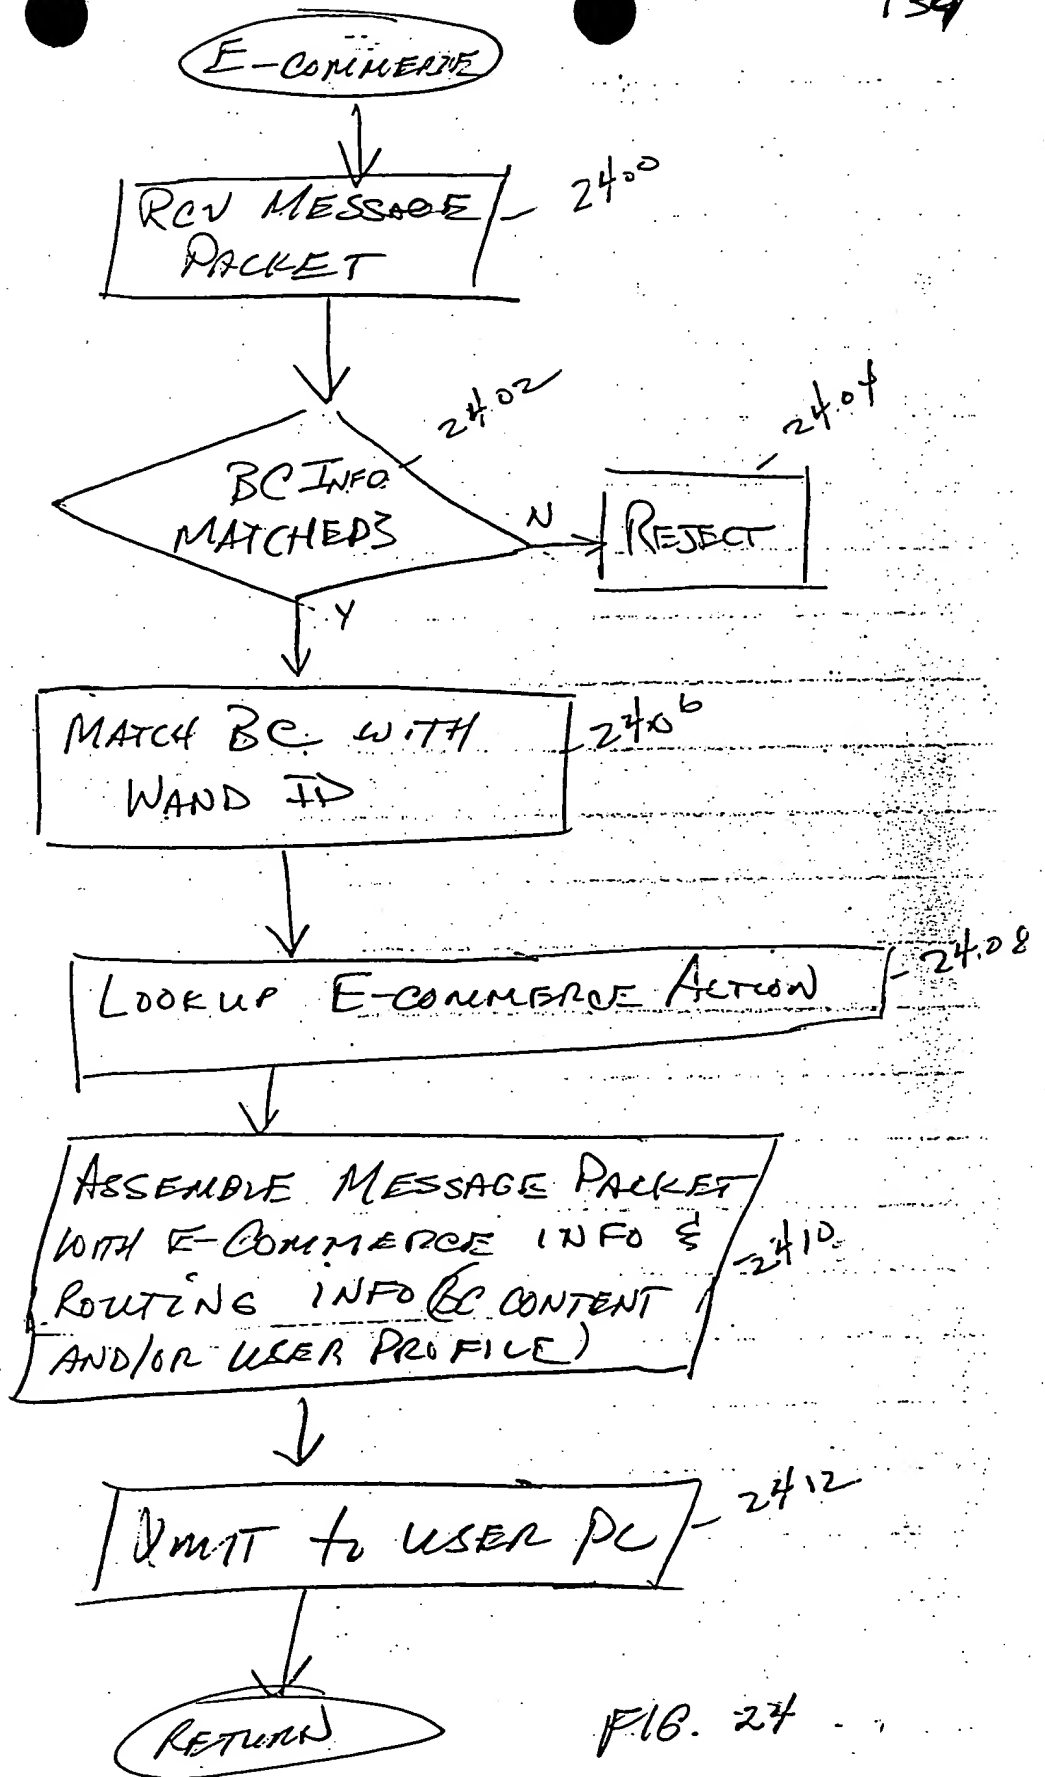 E-COMMERCE
RCV MESSAGE
PACKET
2400
2402
2404
BC INFO
MATCHED?
N
REJECT
Y
MATCH BC WITH
WAND ID
2406
LOOKUP E-COMMERCE ACTION
2408
ASSEMBLE MESSAGE PACKET
WITH E-COMMERCE INFO &
ROUTING INFO (BC CONTENT
AND/OR USER PROFILE)
2410
XMIT to USER PC
2412
RETURN
FIG. 24